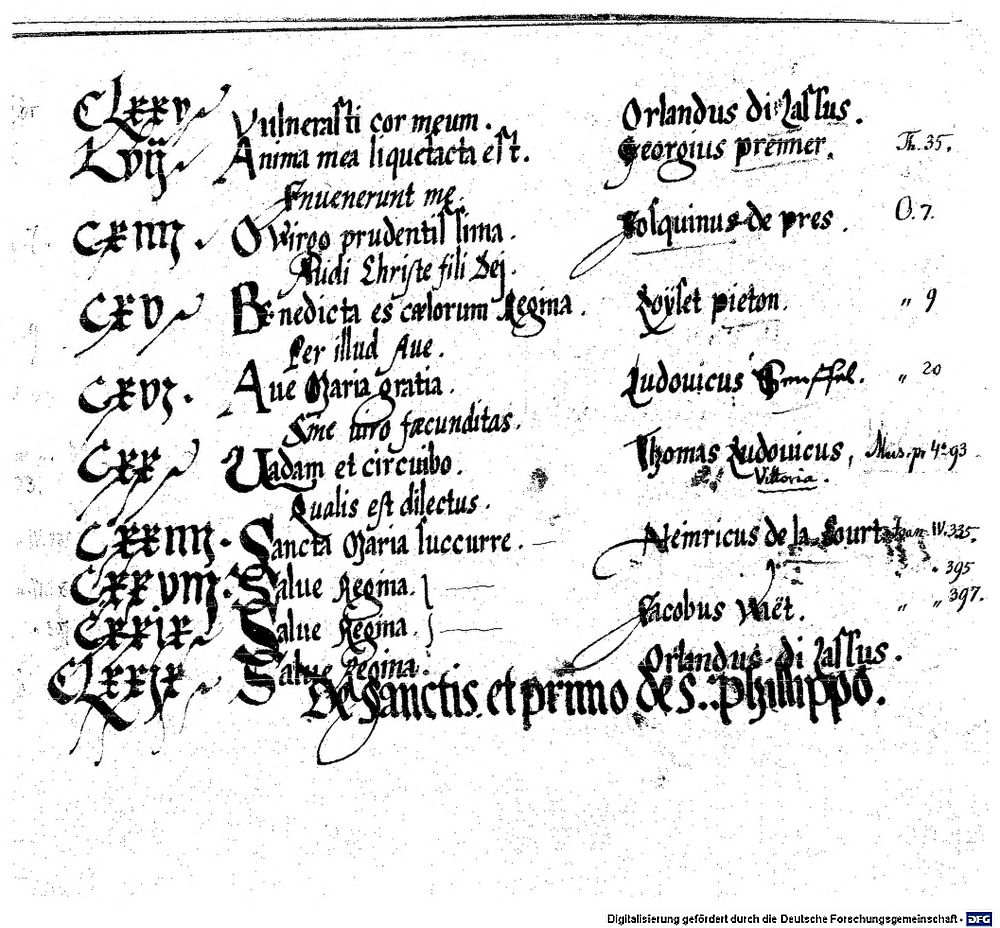 CLxxv Vulnerasti cor meum. Orlandus di Lassus.
Lvij Anima mea liquefacta est. Georgius prenner. Th. 35.
Inuenerunt me.
CXIIII. O Virgo prudentissima. Josquinus de pres. O. 7.
Audi Christe fili Dei.
CXV Benedicta es cælorum Regina. Loÿset pieton. " 9
Per illud Aue.
CXVI. Aue Maria gratia. Ludouicus Sennffel. " 20
Sine uiro fæcunditas.
CXX Uadam et circuibo. Thomas Ludouicus, Mus. pr 4° 93
Vittoria.
Qualis est dilectus.
CXXIIII. Sancta Maria succurre. Heinricus de la Court IV. 335.
CXXVIII. Salue Regina. " 395
CXXIX Salue Regina. Jacobus Vaët. " " 397.
CLXXIX Salue Regina. Orlandus di Lassus.
De Sanctis. et primo de S. philippo.
Digitalisierung gefördert durch die Deutsche Forschungsgemeinschaft - DFG